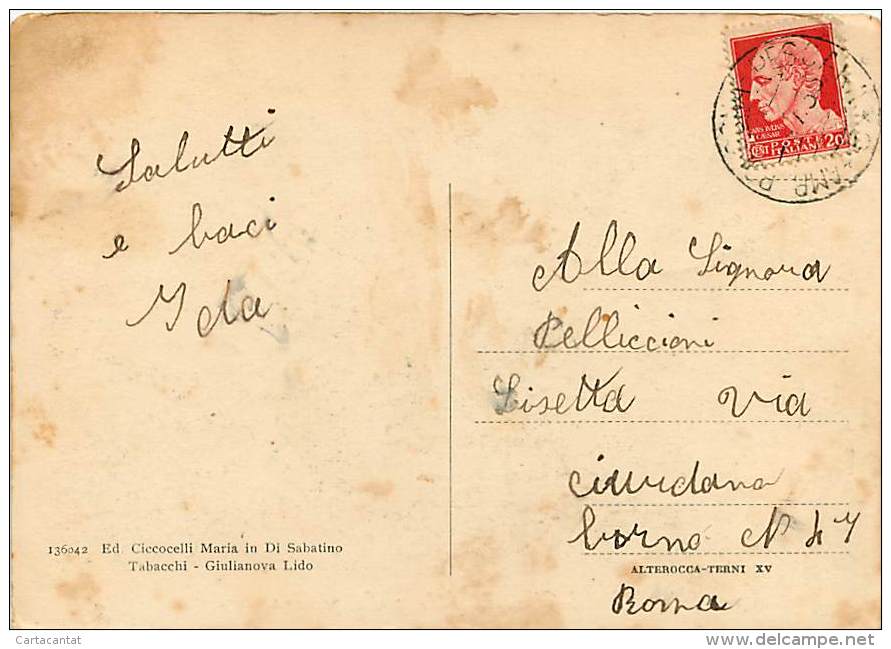 Salutti
e baci
Ida
136042 Ed. Ciccocelli Maria in Di Sabatino
Tabacchi - Giulianova Lido
IVLIVS
CAESAR
POSTE
ITALIANE
20
CEST
Alla Signora
Pelliccioni
Lisetta Via
N 47
ALTEROCCA-TERNI XV
Roma
Cartacantat
www.delcampe.net